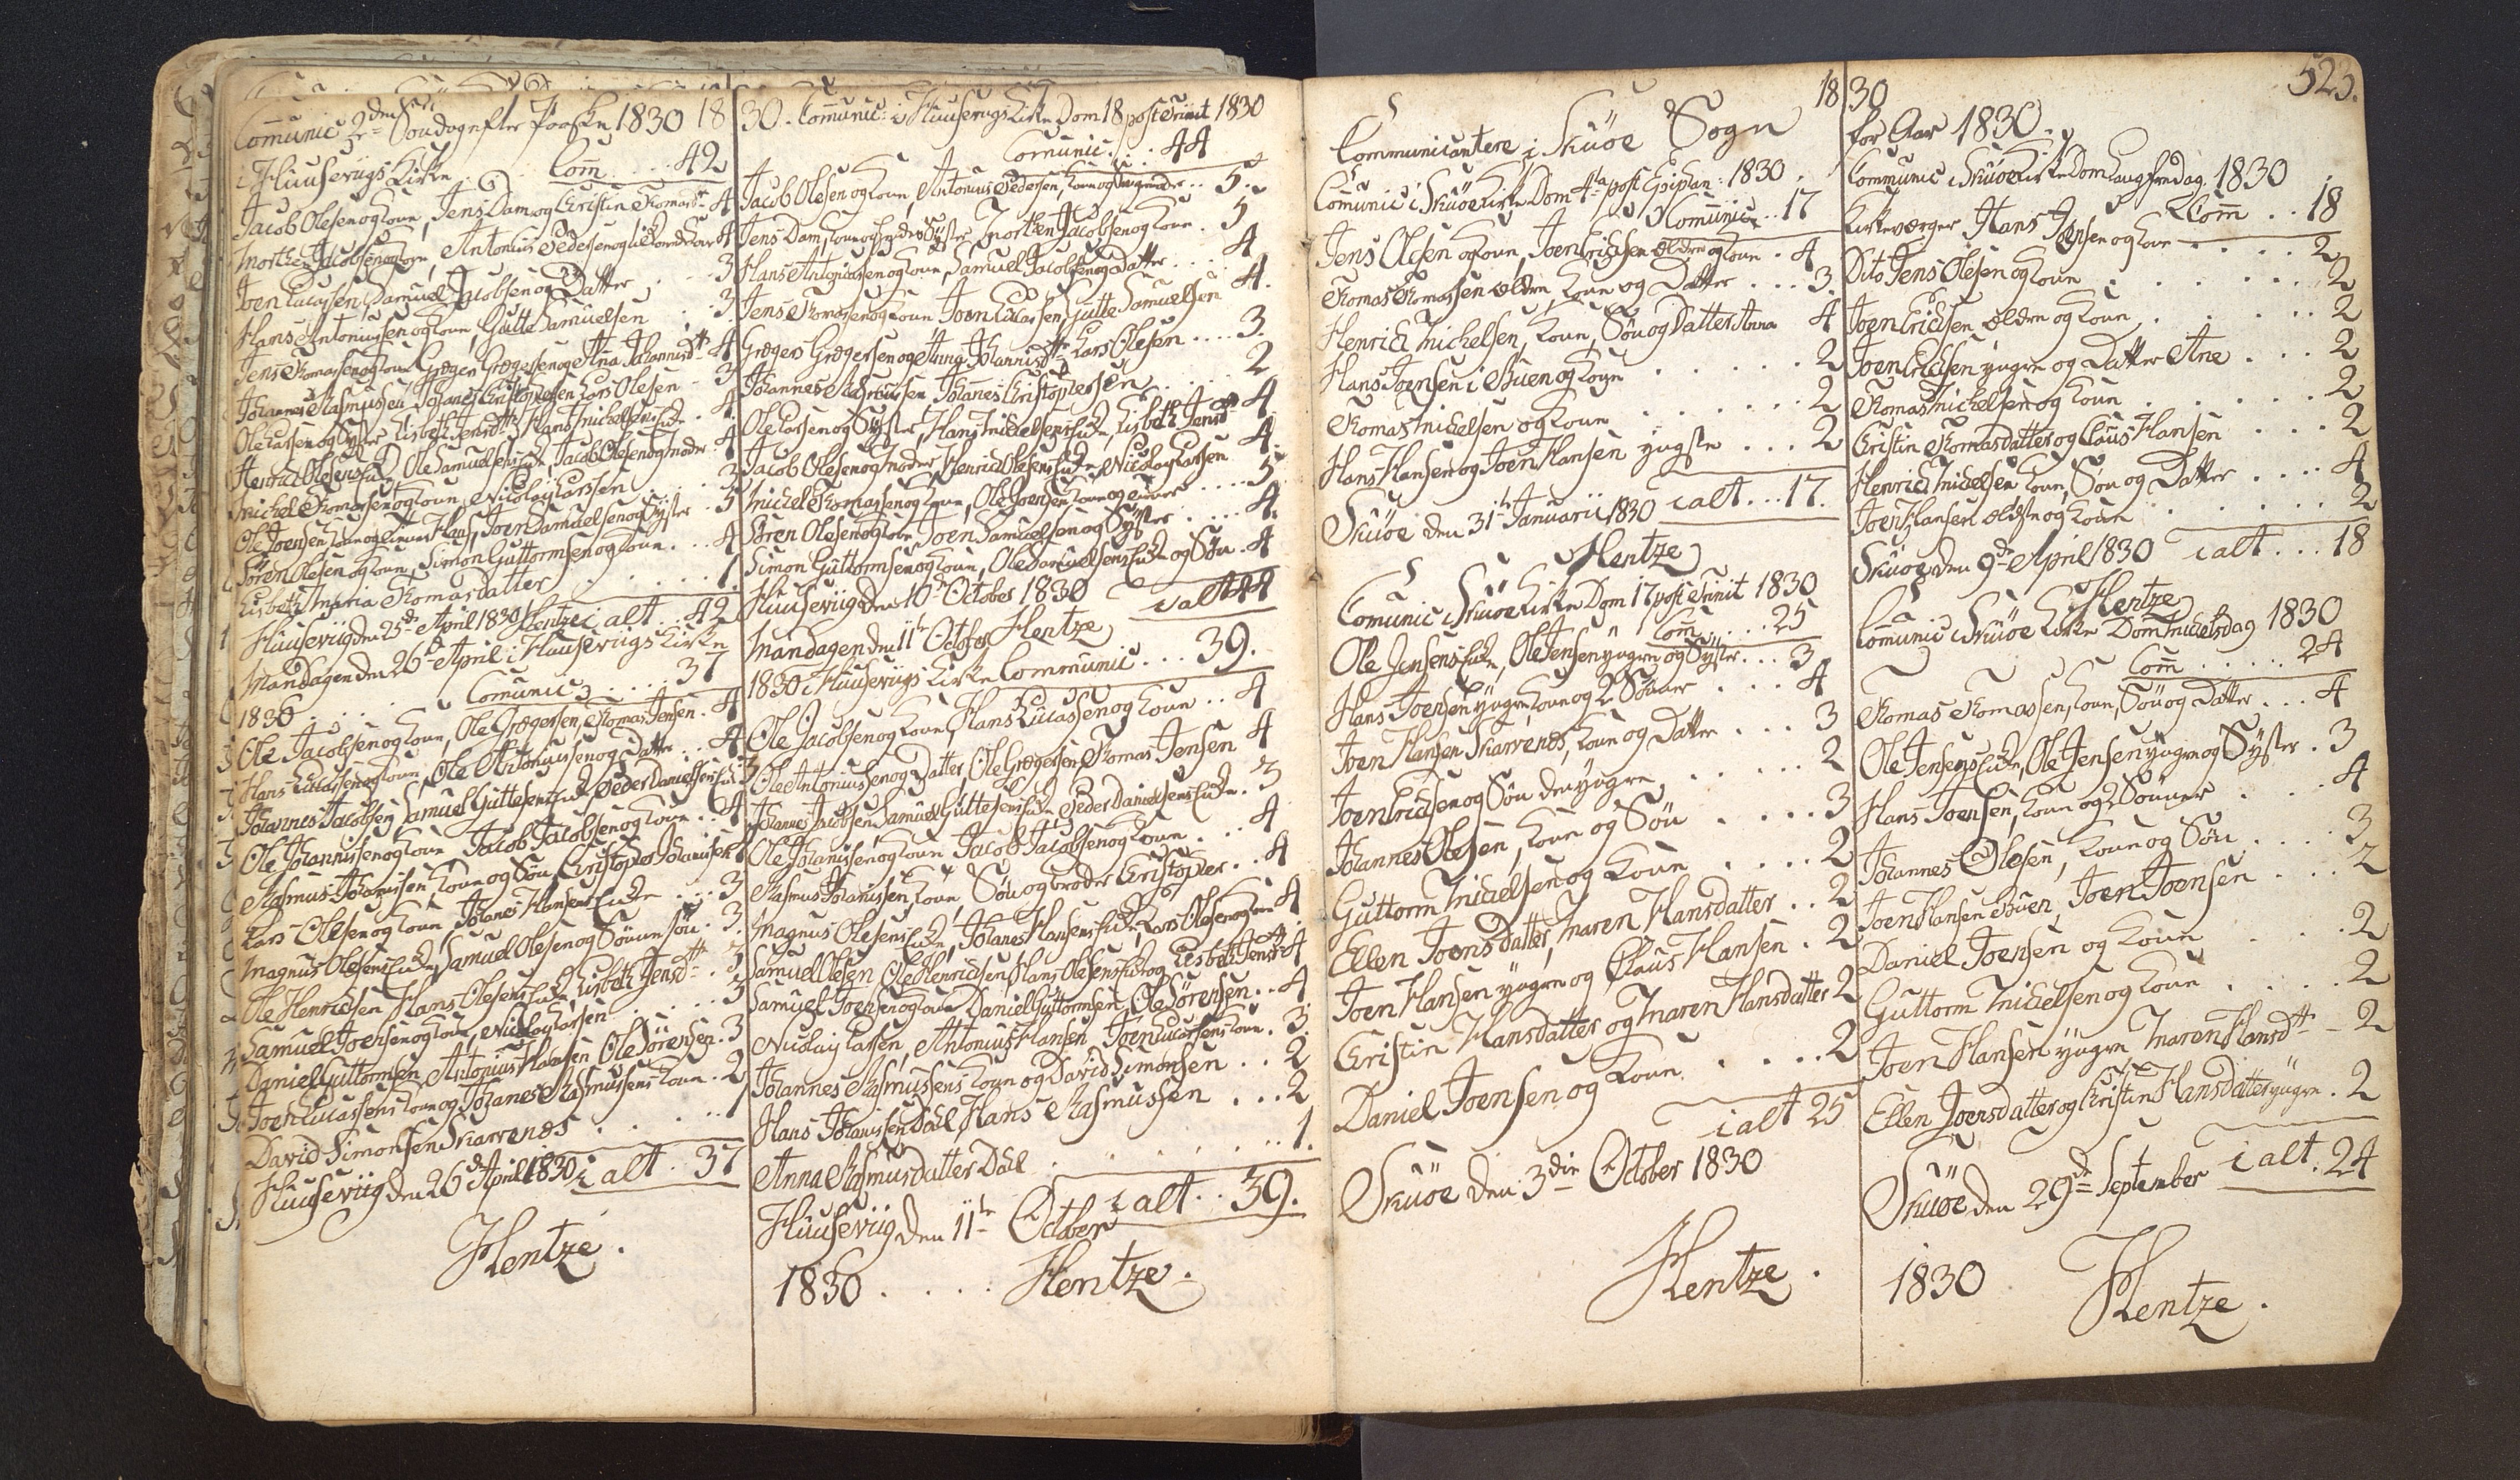 Comunic 2den Søndag efter Paaske 1830
i Huusevigs Kirke Com . . 42
Jacob Olesen og Kone, Jens Dam og Cristin Thomasdr 4
Morthen Jacobsen og Kone, Antonius Pedersen og 4
Joen Lucassen, Samuel Jacobsen og Datter . . 3
Hans Antoniussen og Kone, Gutte Samuelsen . 3.
Jens Thomassen og Kone Grøgers Grøgersen og Ana Johannisdtr 4
Johannes Rasmussen Johanes Cristophersen Lars Olesen - 3
Ole Larsen og Syster Lisbeth Jensdtr Hans Michelsens Enke . 4
Henric Olesens Enke Ole Samuelsens Enke, Jacob Olesen og Moder . 4
Michel Thomassen og Kone, Nicolaj Larssen . . . 3
Ole Joensen Kone og Hans, Joen Samuelsen og Syster . 5
Sören Olesen og Kone, Simon Guttormsen og Kone . . . 4
Lisbeth Maria Thomasdatter . . . . . 1
Huusevig den 25de April 1830 Hentze i alt . 42
Mandagen den 26de April i Huusevigs Kirke
1830 . . . Comunic . . . . 37
Ole Jacobsen og Kone, Ole Grøgersen, Thomas Jensen . 4
Hans Lucassen og Kone Ole Antoniussen og Datter . . 4
Johannes Jacobsen Samuel Guttesens Enke, Peder Danielsens Enke 3
Ole Johannissen og Kone Jacob Jacobsen og Kone . . 4
Rasmus Johanissen, Kone og Søn, Cristopher Johanissen 4
Lars Olesen og Kone, Johanes Hansens Enke . . . 3
Magnus Olesens Enke, Samuel Olesen og Sönne Søn . 3.
Ole Henricsen Hans Olesens Enke, Lisbeth Jensdtr . 3
Samuel Joensen og Kone, Nicolaj Larsen . . . 3
Daniel Guttormsen Antonius Hansen Ole Sörensen . 3
Joen Lucassens Kone og Johanes Rasmussens Kone . 2
David Simonsen Skarvenes . . . . 1
Huusevig den 26de April 1830 i alt . 37
Hentze .
18|30 . Comunic: i Huusevigs Kirke Dom 18 post Trinit 1830
Comunic . . . 44
Jacob Olesen og Kone, Antonius Pedersen, Kone og Svigmoder . . 5.
Jens Dam, Kone og hendes Syster, Morthen Jacobsen og Kone . 5
Hans Antoniussen og Kone, Samuel Jacobsen og Datter . . . 4
Jens Thomassen og Kone Joen Lucassen, Gutte Samuelsen 4.
Grøgers Grøgersen og Anna Johannisdtr Lars Olesen . . . . 3.
Johannes Rasmussen Johanes Christophersen . . . 2
Ole Larsen og Syster, Hans Michelsens Enke, Lisbeth Jensdtr 4
Jacob Olesen og Moder, Henric Olesens Enke, Nicolaj Larsen 4.
Michel Thomassen og Kone, Ole Joensen, Kone og . . . . 5.
Sören Olesen og Kone Joen Samuelsen og Syster . . . 4.
Simon Guttormsen og Kone, Ole Samuelsens Enke og Søn . 4
Huusevig den 10de October 1830 i alt 44
Hentze
Mandagen den 11te October
1830 i Huusevigs Kirke Communic . . . 39.
Ole Jacobsen og Kone, Hans Lucassen og Kone . . 4
Ole Antoniussen og Datter, Ole Grøgersen Thomas Jensen 4
Johanes Jacobsen Samuel Guttesens Enke Peder Danielsens Enke . 3
Ole Johanissen og Kone Jacob Jacobsen og Kone . . . 4
Rasmus Johanissen, Kone, Søn og broder Cristopher . . 4
Magnus Olesens Enke, Johanes Hansens Enke, Lars Olesen og Kone 4
Samuel Olesen, Ole Henricsen, Hans Olesens Enke og Lisbeth Jensdtr 4
Samuel Joensen og Kone Daniel Guttormsen, Ole Sörensen . . 4
Nicolaj Larsen, Antonius Hansen, Joen Lucassens Kone . 3.
Johannes Rasmussens Kone og David Simonsen . . 2
Hans Johanissen Dal, Hans Rasmussen . . . 2
Anna Rasmusdatter Dal . . . . . . 1.
Huusevig den 11te October i alt . . 39.
1830 . . . . Hentze .
18|30
523.
Communicantere i Skuøe Sogn
Comunic i Skuøe Kirke Dom 4ta post Epiphan: 1830 .
Comunic . . 17
Jens Olesen og Kone, Joen Ericsen ældre og Kone . 4
Thomas Thomassen ældre, Kone og Datter . . . 3.
Henric Michelsen, Kone, Søn og Datter Anna 4
Hans Joensen i Buen og Kone . . . . . 2
Thomas Michelsen og Kone . . . . . . 2
Hans Hansen og Joen Hansen yngste . . . 2
Skuøe den 31te Januarii 1830 i alt . . . 17.
Hentze
Comunic i Skuøe Kirke Dom 17 post Trinit 1830
Com . . . 25
Ole Jensens Enke, Ole Jensen yngre og Syster . . . 3
Hans Joensen yngre, Kone og 2 Sönner . . . 4
Joen Hansen Skarvenes, Kone og Datter . . . 3
Joen Ericsen og Søn den yngre . . . . . 2
Johannes Olesen, Kone og Søn . . . . 3
Guttorm Michelsen og Kone . . . . 2
Ellen Joensdatter, Maren Hansdatter . . 2
Joen Hansen yngre og Claus Hansen . 2
Cristin Hansdatter og Maren Hansdatter 2
Daniel Joensen og Kone . . . . . 2
i alt 25
Skuøe den 3die October 1830
Hentze .
for Aar 1830.
Communic i Skuøe Kirke Dom Langfredag 1830
Com . . 18
Kirkeværger Hans Jensen og Kone . . . . 2
Dito Jens Olesen og Kone . . . . . . 2
Joen Ericsen ældre og Kone . . . . . 2
Joen Ericsen yngre og Datter Ane . . . 2
Thomas Michelsen og Kone . . . . . 2
Cristin Thomasdatter og Claus Hansen . . . 2
Henric Michelsen Kone, Søn og Datter . . . . 4
Joen Hansen ældste og Kone . . . . . 2
Skuøe den 9de April 1830 i alt . . . 18
Hentze
Comunic i Skuöe Kirke Dom Michelsdag 1830
Com . . . . . 24
Thomas Thomassen, Kone, Søn og Datter . . . 4
Ole Jensens Enke, Ole Jensen yngre og Syster . 3
Hans Joensen, Kone og 2 Sönner . . . 4
Johannes Olesen, Kone og Søn . . . 3
Joen Hansen Buen, Joen Joensen . . . 2
Daniel Joensen og Kone . . . 2
Guttorm Michelsen og Kone . . . . 2
Joen Hansen yngre Maren Hansdtr - 2
Ellen Joensdatter og Cristin Hansdatter yngre . 2
Skuøe den 29de September i alt . 24
1830 Hentze .